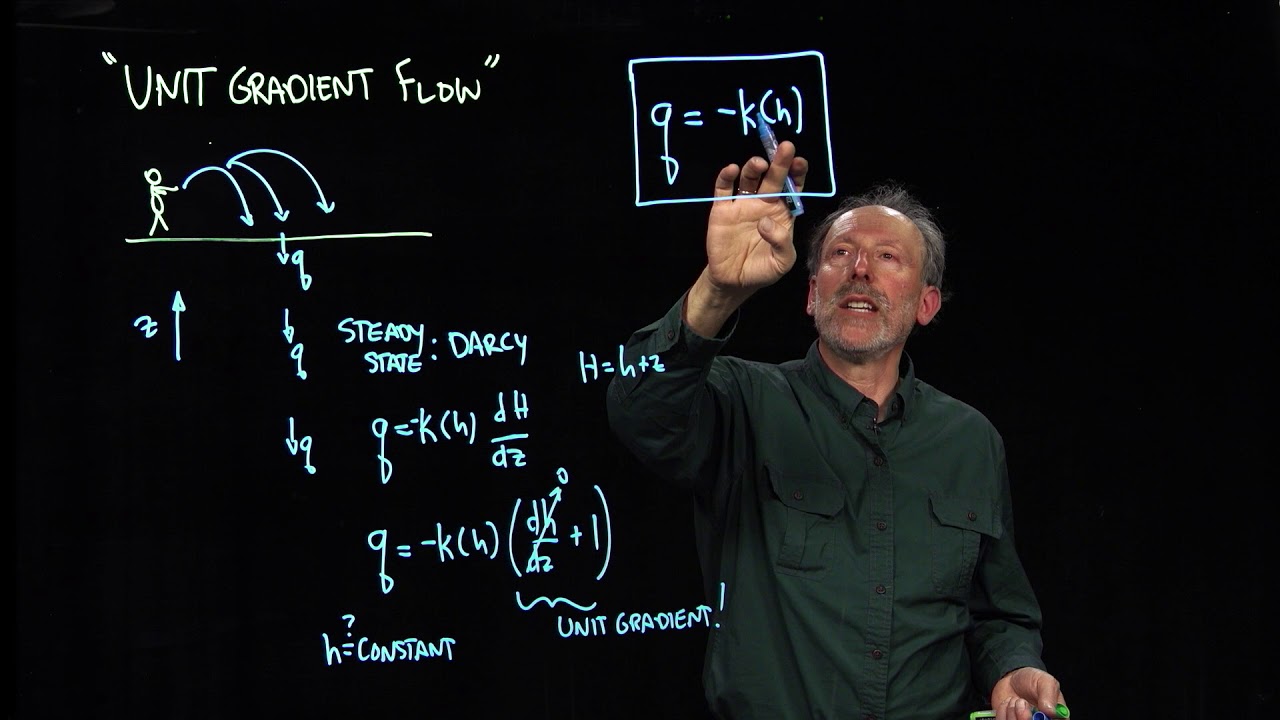 "UNIT GRADIENT FLOW"
q = -k(h)
q
z
q
STEADY
STATE: DARCY
H=h+z
q
q=-k(h) dH/dz
0
q = -k(h) (dh/dz + 1)
UNIT GRADIENT!
?
h=CONSTANT